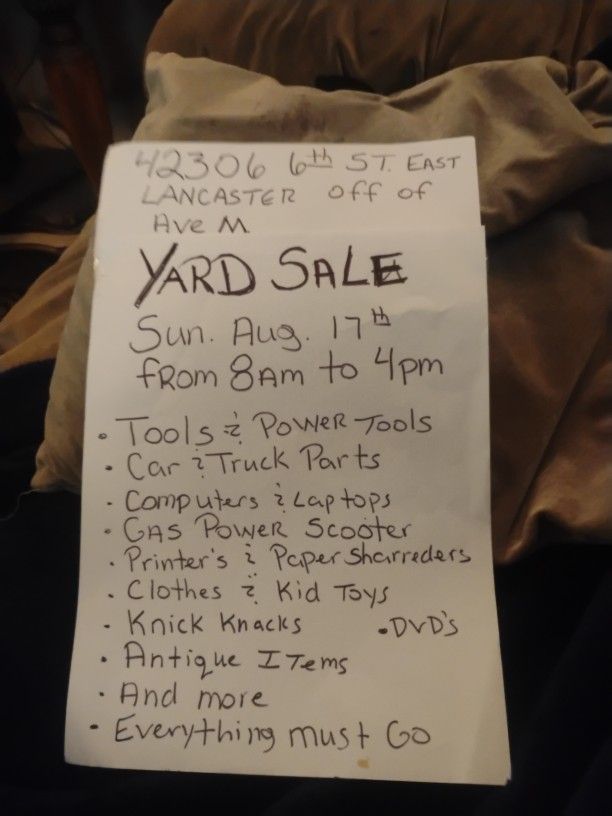 42306 6th ST. EAST
LANCASTER off of
Ave M
YARD SALE
Sun. Aug. 17th
fROM 8AM to 4pm
• Tools & Power Tools
• Car & Truck Parts
• Computers & Laptops
• GAS Power Scooter
• Printer's & Paper Sharreders
• Clothes & Kid Toys
• Knick Knacks •DVD's
• Antique ITems
• And more
• Everything must Go